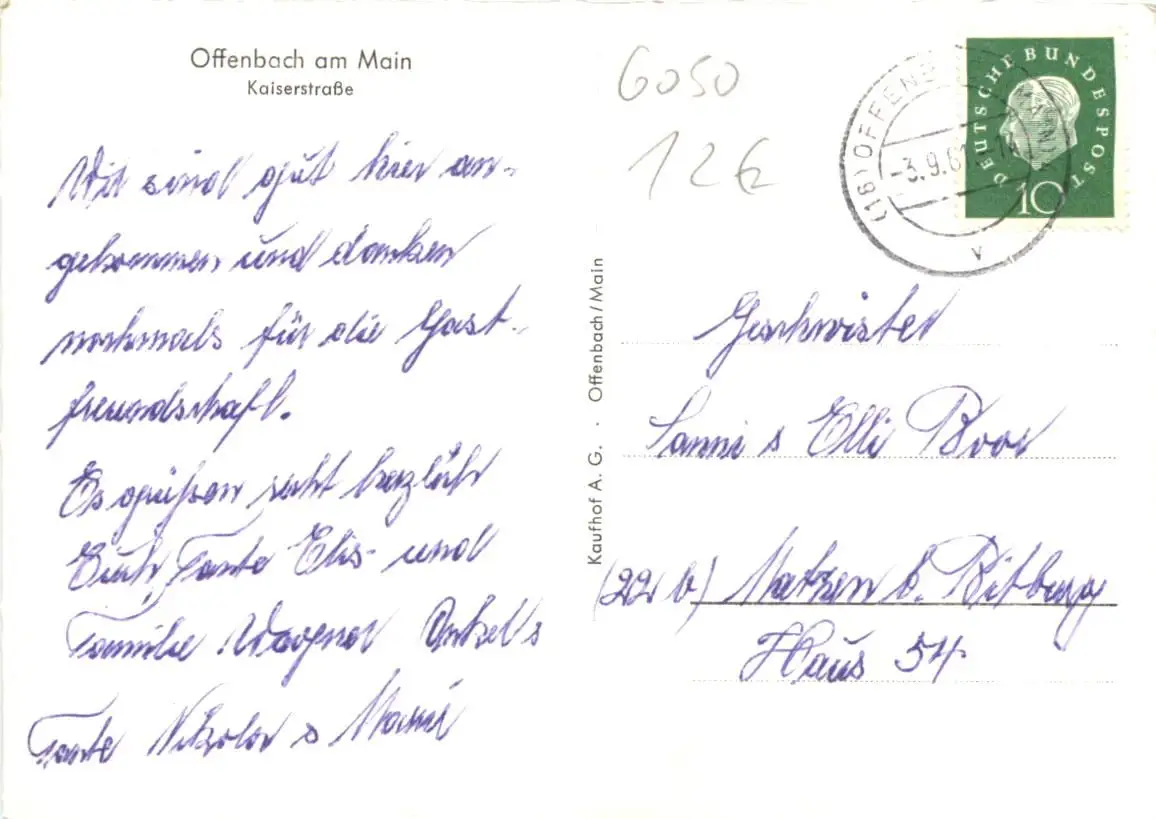 Offenbach am Main
Kaiserstraße
Wir sind gut hier an-
gekommen und danken
nochmals für die Gast-
freundschaft.
Es grüßen recht herzlich
Euch, Tante Elis- und
Familie Wagner Onkel s
Tante Nikolor s Maria
Kaufhof A. G. · Offenbach/Main
6050
12€
DEUTSCHE BUNDESPOST
10
(16) OFFENB
-3.9.61
v
Geschwister
Sanni s Elli Boor
(22 b) Matzen b. Bitburg
Haus 54